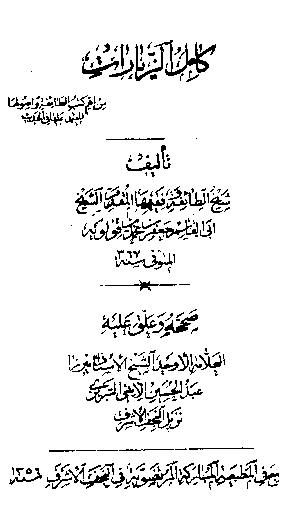 كامل الزيارات
من اهم كتب الطائفة واصولها
المعتمد عليها في الحديث
تأليف
شيخ الطائفة وفقيهها المقدم الشيخ
ابي القاسم جعفر بن محمد بن قولويه
المتوفى سنة ٣٦٧
صححه وعلق عليه
العلامة الأوحد الشيخ الاستاذ ميرزا
عبد الحسين الأميني التبريزي
نزيل النجف الأشرف
في المطبعة المباركة المرتضوية في النجف الأشرف سنة ١٣٥٦